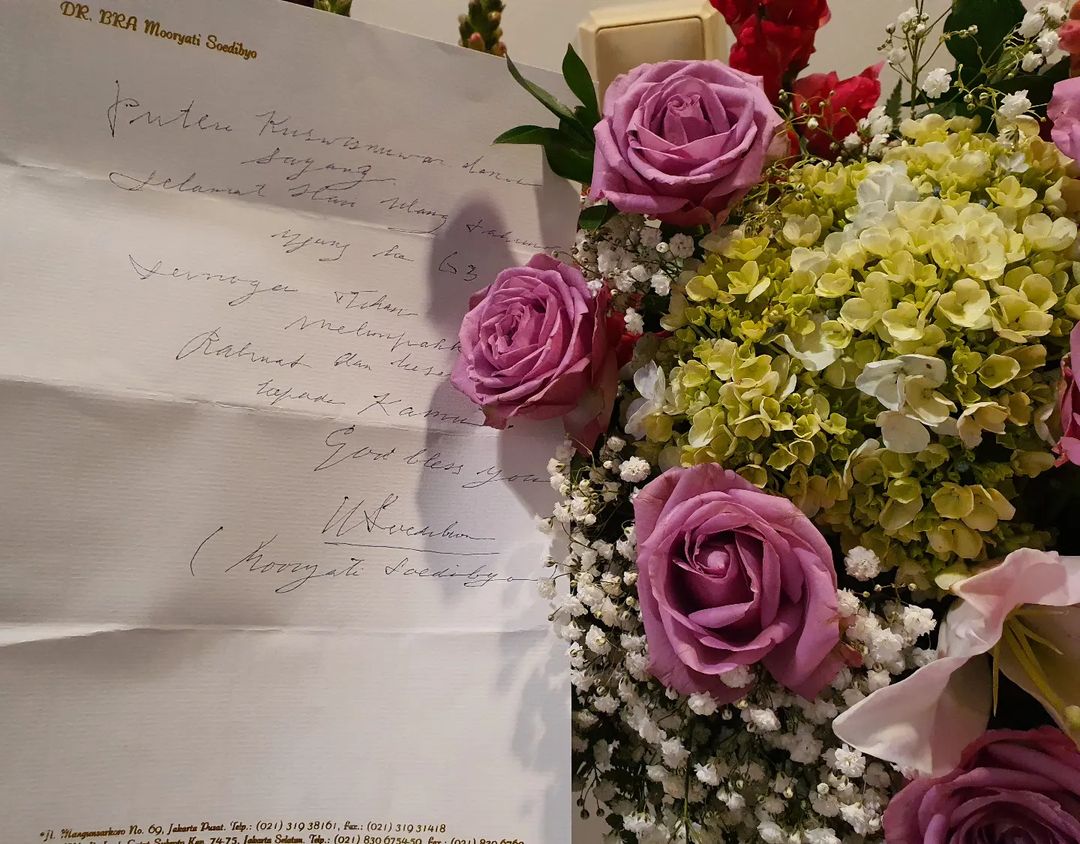 DR. BRA Mooryati Soedibyo
Puteri Kuswisnuwardani
Sayang
Selamat Hari Ulang Tahun
yang ke 63
Semoga Tuhan
melimpahk
Rahmat dan
kepada Kamu.
God bless you
MSoedibyo
(Mooryati Soedibyo
No. 69, Jakarta Pusat. Telp.: (021) 319 38161, Fax.: (021) 319 31418
Kav. 74-75, Jakarta Selatan. Telp.: (021) 830 6754-59, Fax.: (021) 830